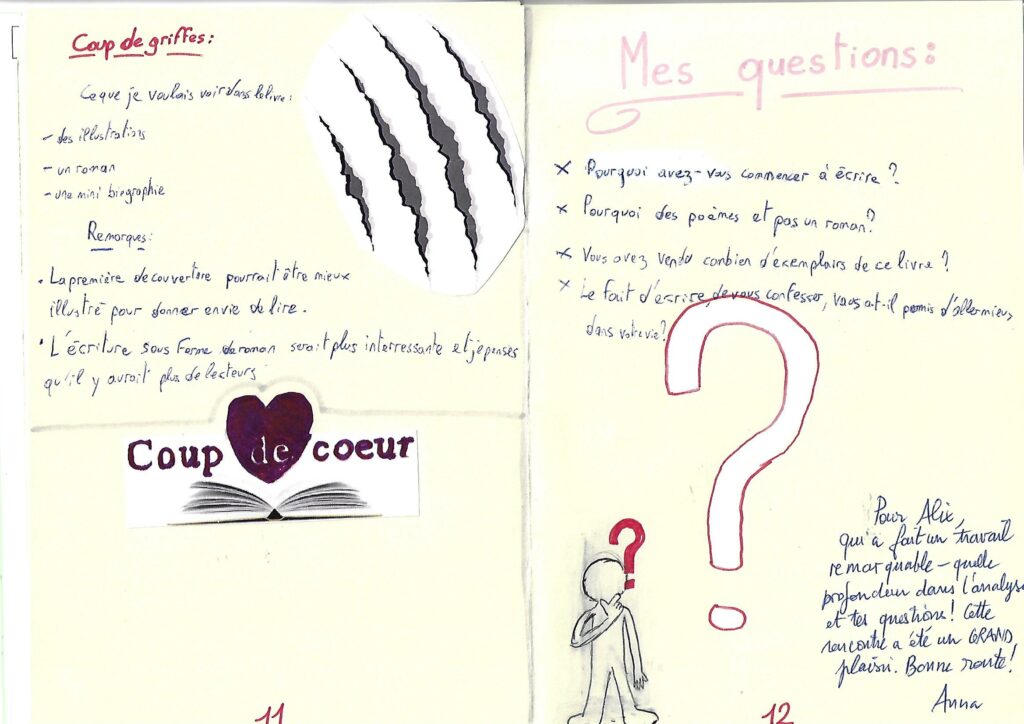 Coup de griffes:
Ce que je voulais voir dans le livre:
- des illustrations
- un roman
- une mini biographie
Remarques:
• La première de couverture pourrait être mieux
illustré pour donner envie de lire.
• L'écriture sous forme de roman serait plus interressante et je penses
qu'il y aurait plus de lecteurs
Coup de coeur
11
Mes questions:
x Pourquoi avez-vous commencer à écrire ?
x Pourquoi des poèmes et pas un roman?
x Vous avez vendu combien d'exemplairs de ce livre ?
x Le fait d'écrire, de vous confesser, vous at-il permis d'aller mieux
dans votre vie?
?
?
Pour Alix,
qui a fait un travail
remarquable - quelle
profondeur dans l'analyse
et tes questions! Cette
rencontre a été un GRAND
plaisir. Bonne route!
Anna
12